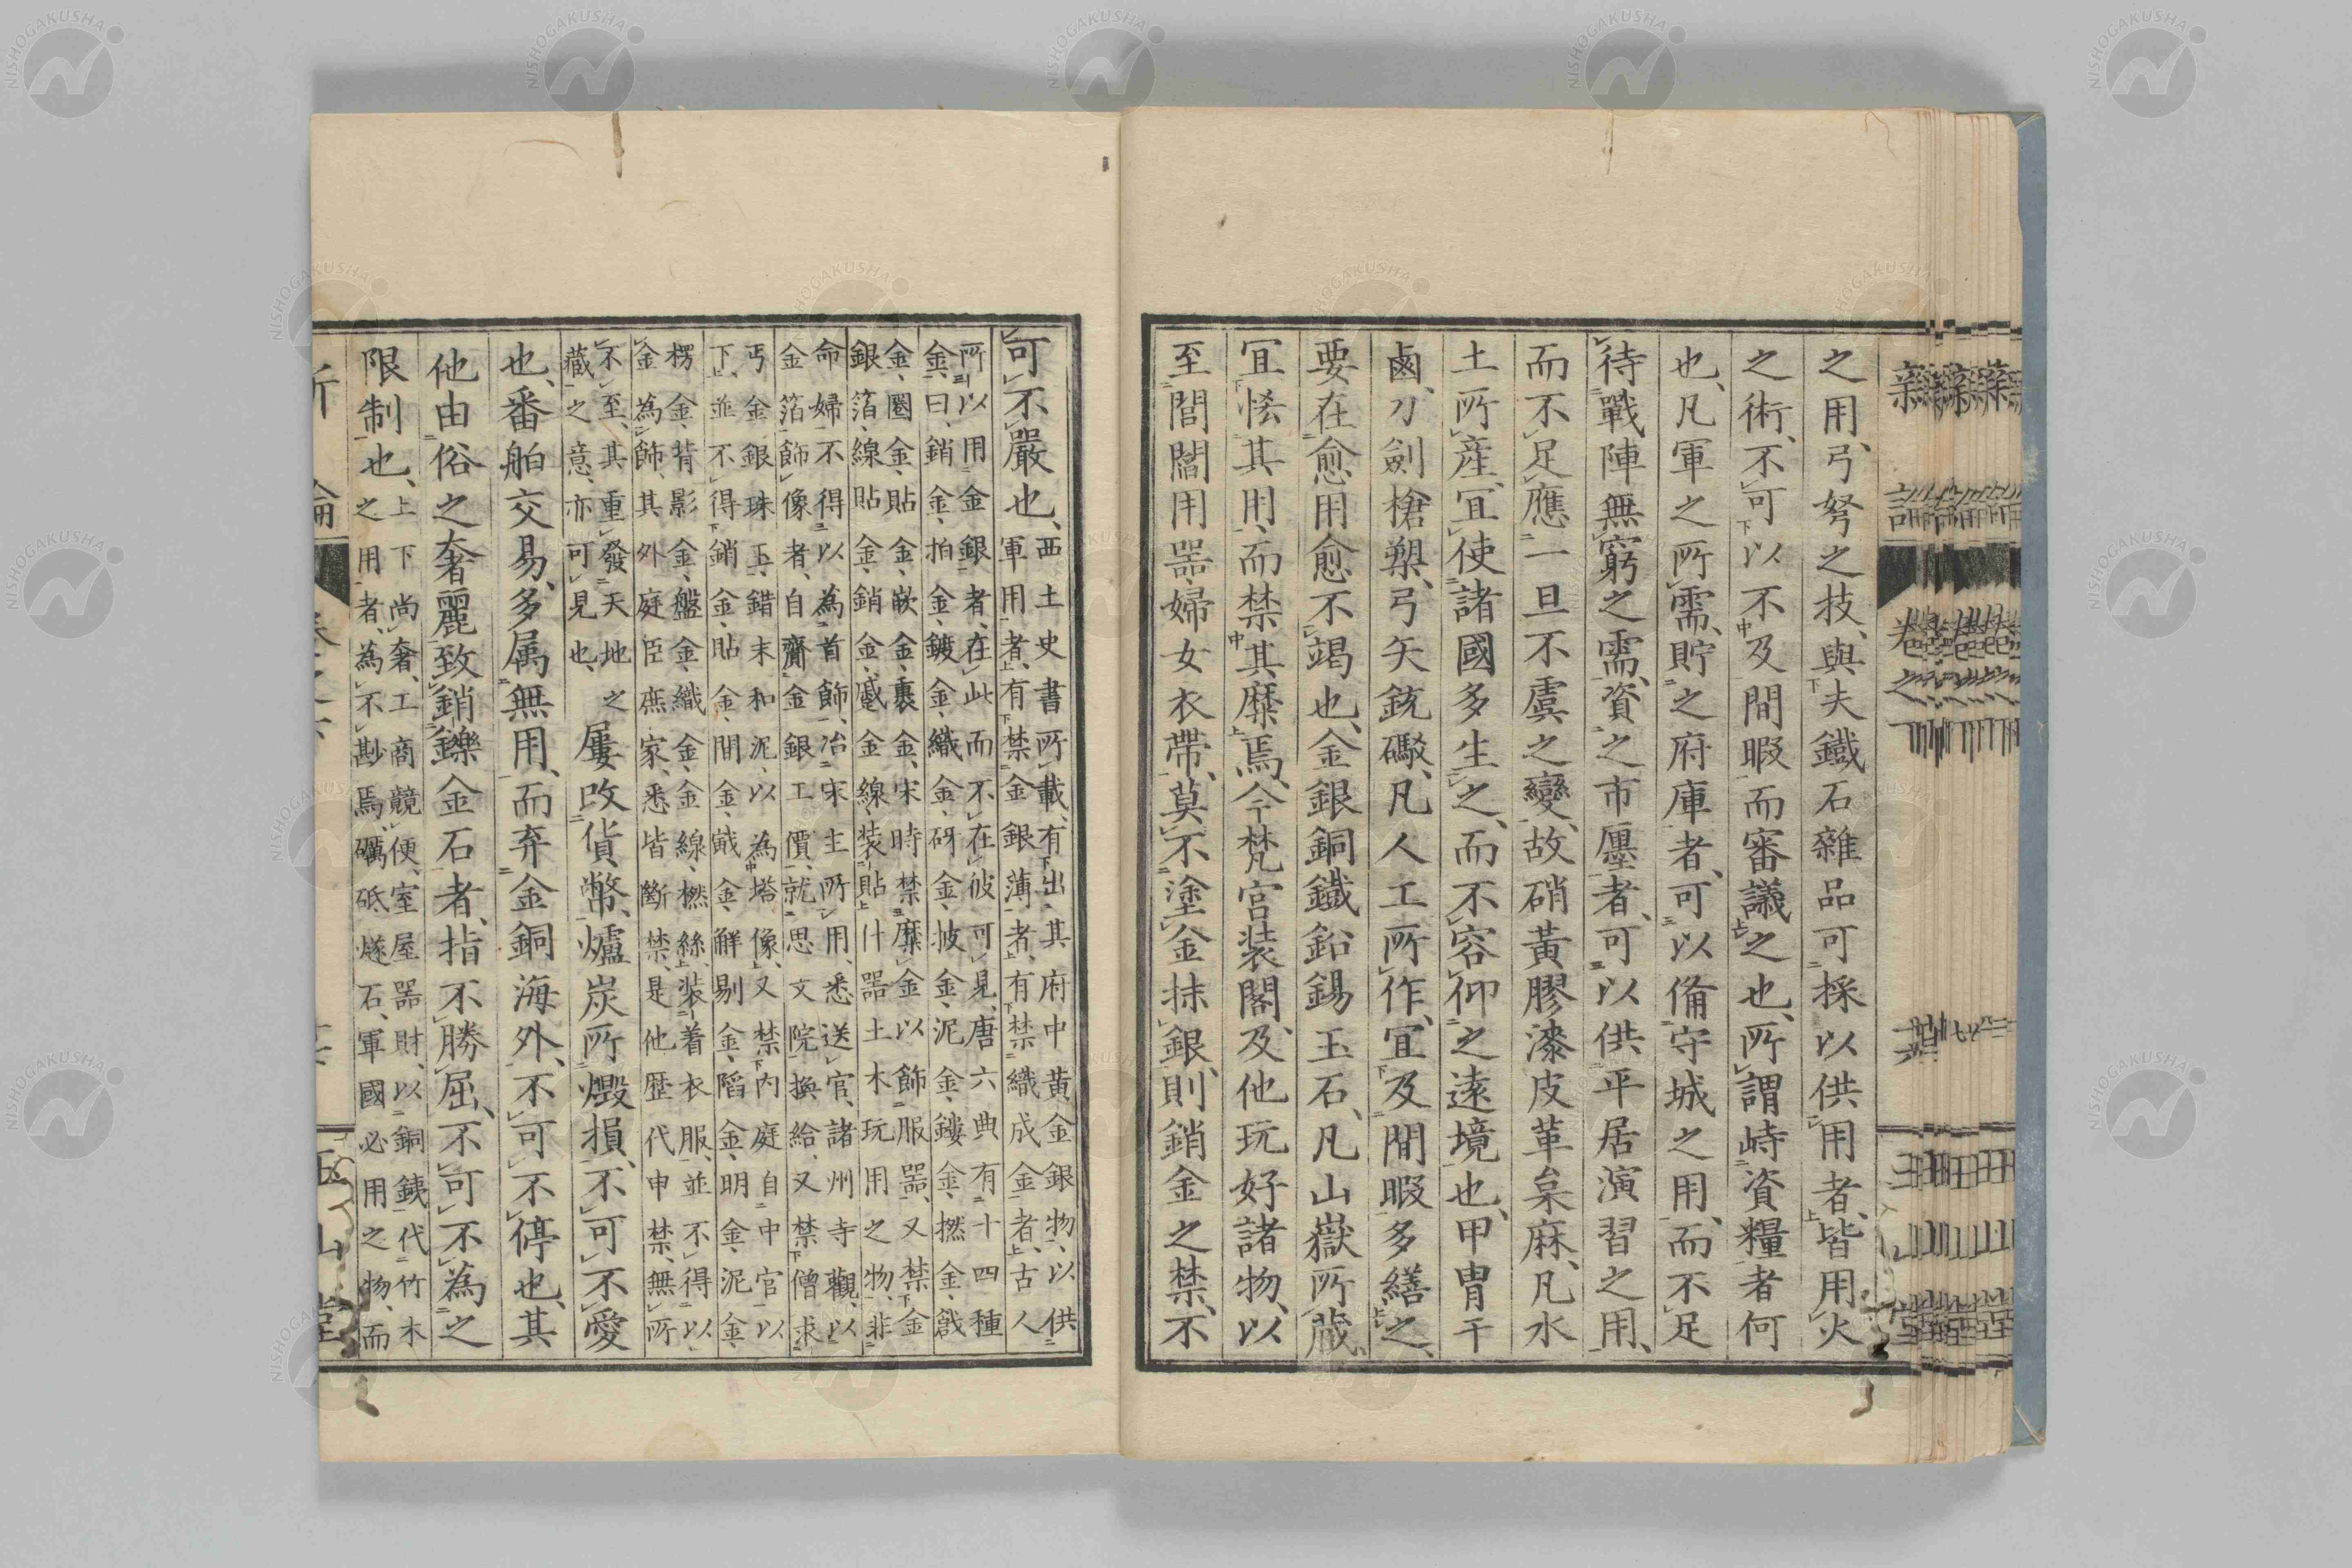 之用、弓弩之技、與夫鐵石雜品可採以供用者、皆用火
之術、不可以不及間暇而審議之也、所謂峙資糧者何
也、凡軍之所需、貯之府庫者、可以備守城之用、而不足
待戰陣無窮之需、資之市廛者、可以供平居演習之用、
而不足應一旦不虞之變、故硝黃膠漆皮革枲麻、凡水
土所產、宜使諸國多生之、而不容仰之遠境也、甲冑干
鹵、刀劍槍槊、弓矢銃礮、凡人工所作、宜及間暇多繕之、
要在愈用愈不竭也、金銀銅鐵鉛錫玉石、凡山嶽所藏、
宜恡其用、而禁其糜焉、今梵宮裝閣、及他玩好諸物、以
至閭閻用器、婦女衣帶、莫不塗金抹銀、則銷金之禁、不
可不嚴也、
西土史書所載、有出其府中黃金銀物、以供
軍用者、有禁金銀薄者、有禁織成金者、古人
所以用金銀者、在此而不在彼可見、唐六典有十四種
金、曰、銷金、拍金、鍍金、織金、砑金、披金、泥金、鏤金、撚金、戧
金、圈金、貼金、嵌金、裹金、宋時禁糜金以飾服器、又禁金
銀箔線貼金、銷金、蹙金線、裝貼什器土木玩用之物、非
命婦不得以為首飾、冶宋主所用、悉送官、諸州寺觀、以
金箔飾像者、自齎金銀工價、就思文院換給、又禁僧求
丐金銀珠玉、錯末和泥、以為塔像、又禁內庭自中宮以
下、並不得銷金、貼金、間金、戭金、解剔金、陷金、明金、泥金、
楞金、背影金、盤金、織金、金線、撚絲、裝着衣服、並不得以
金為飾、其外庭臣庶家、悉皆斷禁、是他歷代申禁、無所
不至、其重發天地之
藏之意、亦可見也、
屢改貨幣、爐炭所燬損、不可不愛
也、番舶交易、多属無用、而弃金銅海外、不可不停也、其
他由俗之奢麗致銷鑠金石者、指不勝屈、不可不為之
限制也、
上下尚奢、工商競便、室屋器財、以銅銕代竹木
之用者、為不尠焉、礪砥燧石、軍國必用之物、而